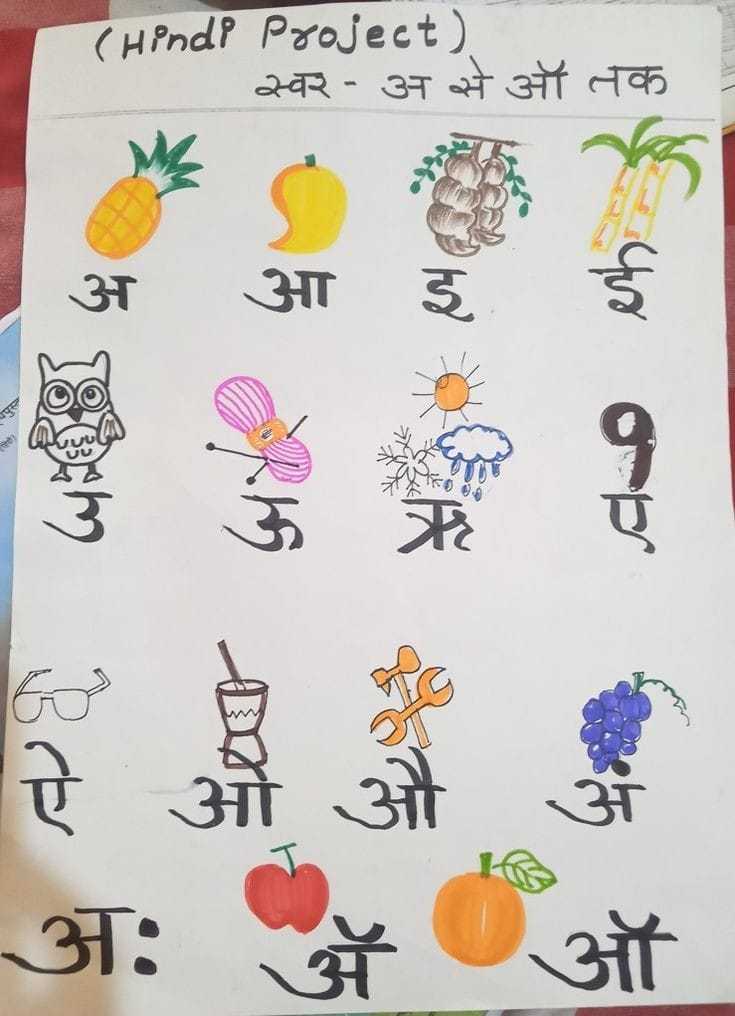 (Hindi Project)
स्वर - अ से ऑ तक
अ आ इ ई
उ ऊ ऋ ए
ऐ ओ औ अं
अः ॲ ऑ